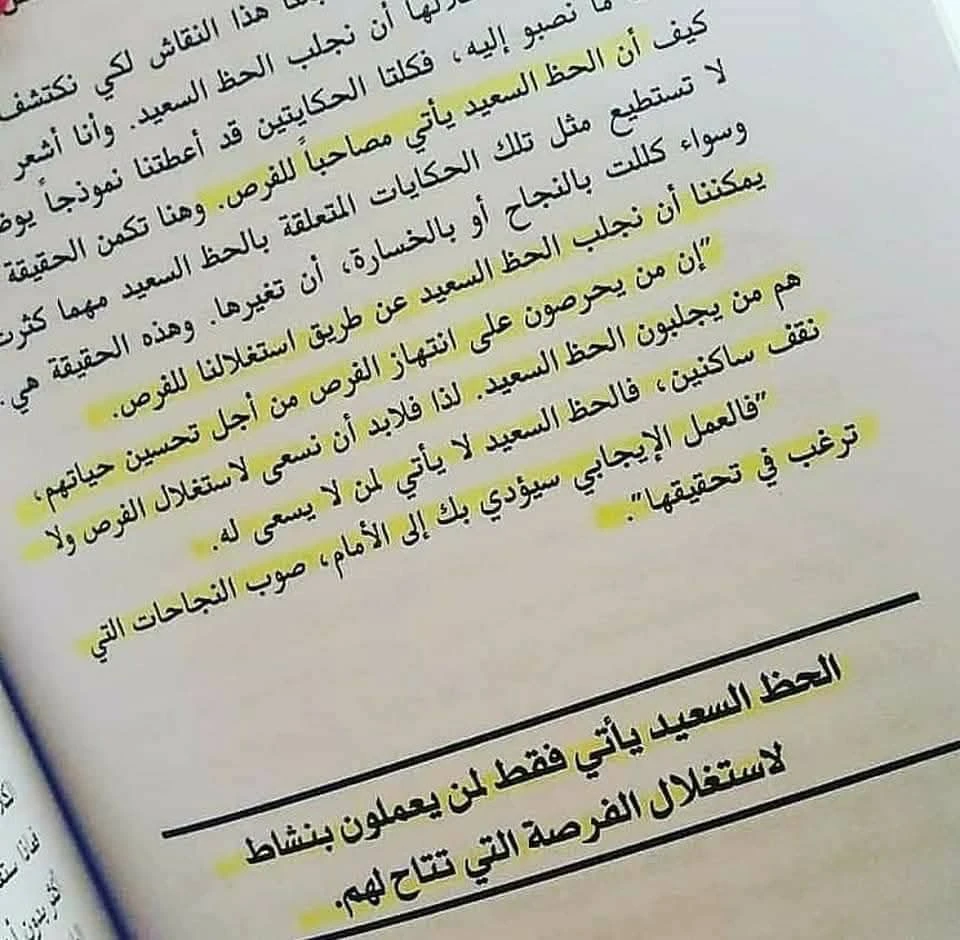 هذا النقاش لكي نكتشف
أن نجلب الحظ السعيد. وأنا أشعر
ما نصبو إليه، فكلتا الحكايتين قد أعطتنا نموذجاً
كيف أن الحظ السعيد يأتي مصاحباً للفرص. وهنا تكمن الحقيقة
لا تستطيع مثل تلك الحكايات المتعلقة بالحظ السعيد مهما كثرت
وسواء كللت بالنجاح أو بالخسارة، أن تغيرها. وهذه الحقيقة هي
يمكننا أن نجلب الحظ السعيد عن طريق استغلالنا للفرص.
"إن من يحرصون على انتهاز الفرص من أجل تحسين حياتهم،
هم من يجلبون الحظ السعيد. لذا فلابد أن نسعى لاستغلال الفرص ولا
نقف ساكنين، فالحظ السعيد لا يأتي لمن لا يسعى له.
"فالعمل الإيجابي سيؤدي بك إلى الأمام، صوب النجاحات التي
ترغب في تحقيقها".
الحظ السعيد يأتي فقط لمن يعملون بنشاط
لاستغلال الفرصة التي تتاح لهم.